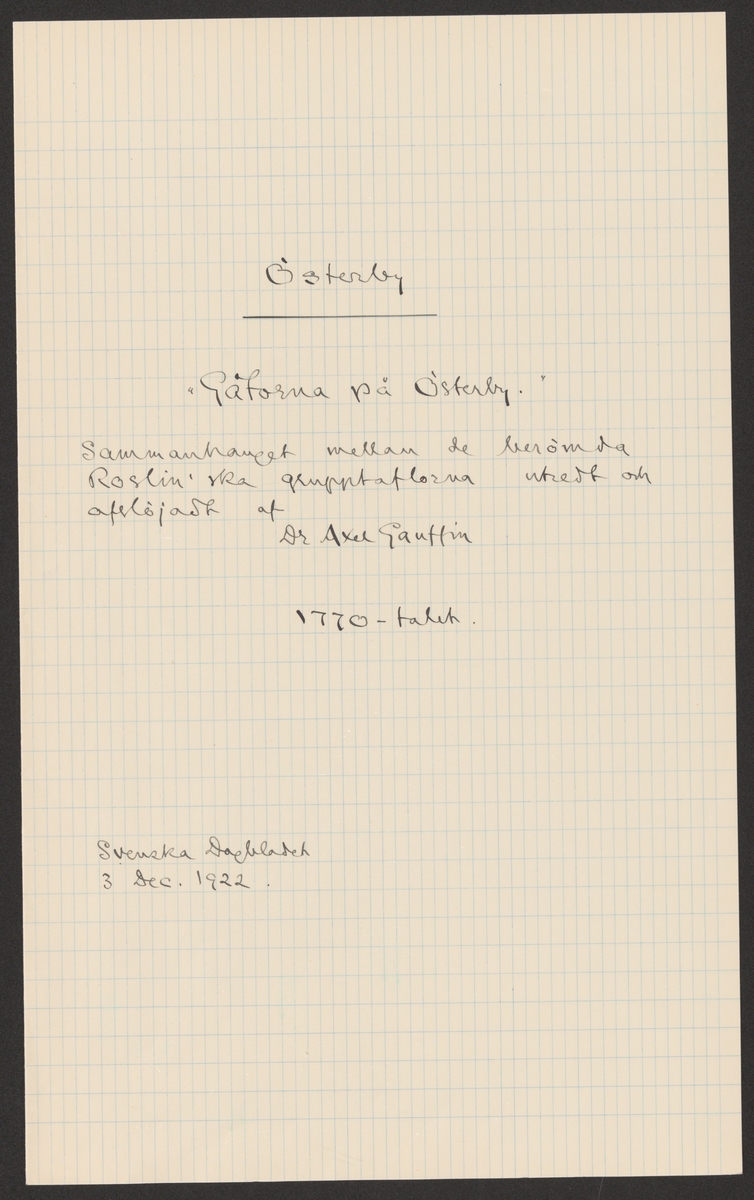 Österby
"Gåtorna på Österby."
Sammanhanget mellan de berömda
Roslin'ska grupptaflorna utredt och
afslöjadt af
Dr Axel Gauffin
1770-talet.
Svenska Dagbladet
3 Dec. 1922.